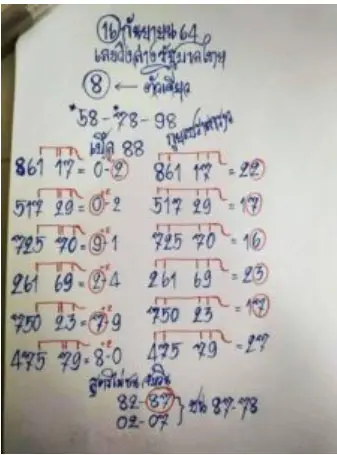 16 กันยายน 64
เลขวิ่งล่างรัฐบาลไทย
8 ← ตัวเดียว
*58-*78-98
เบิ้ล 88
861 17 = 0-2 861 17 = 22
517 29 = 0-2 517 29 = 17
725 70 = 9-1 725 70 = 16
261 69 = 2-4 261 69 = 23
750 23 = 7-9 750 23 = 17
475 79 = 8-0 475 79 = 27
82-87
02-07 } ชน 87-78